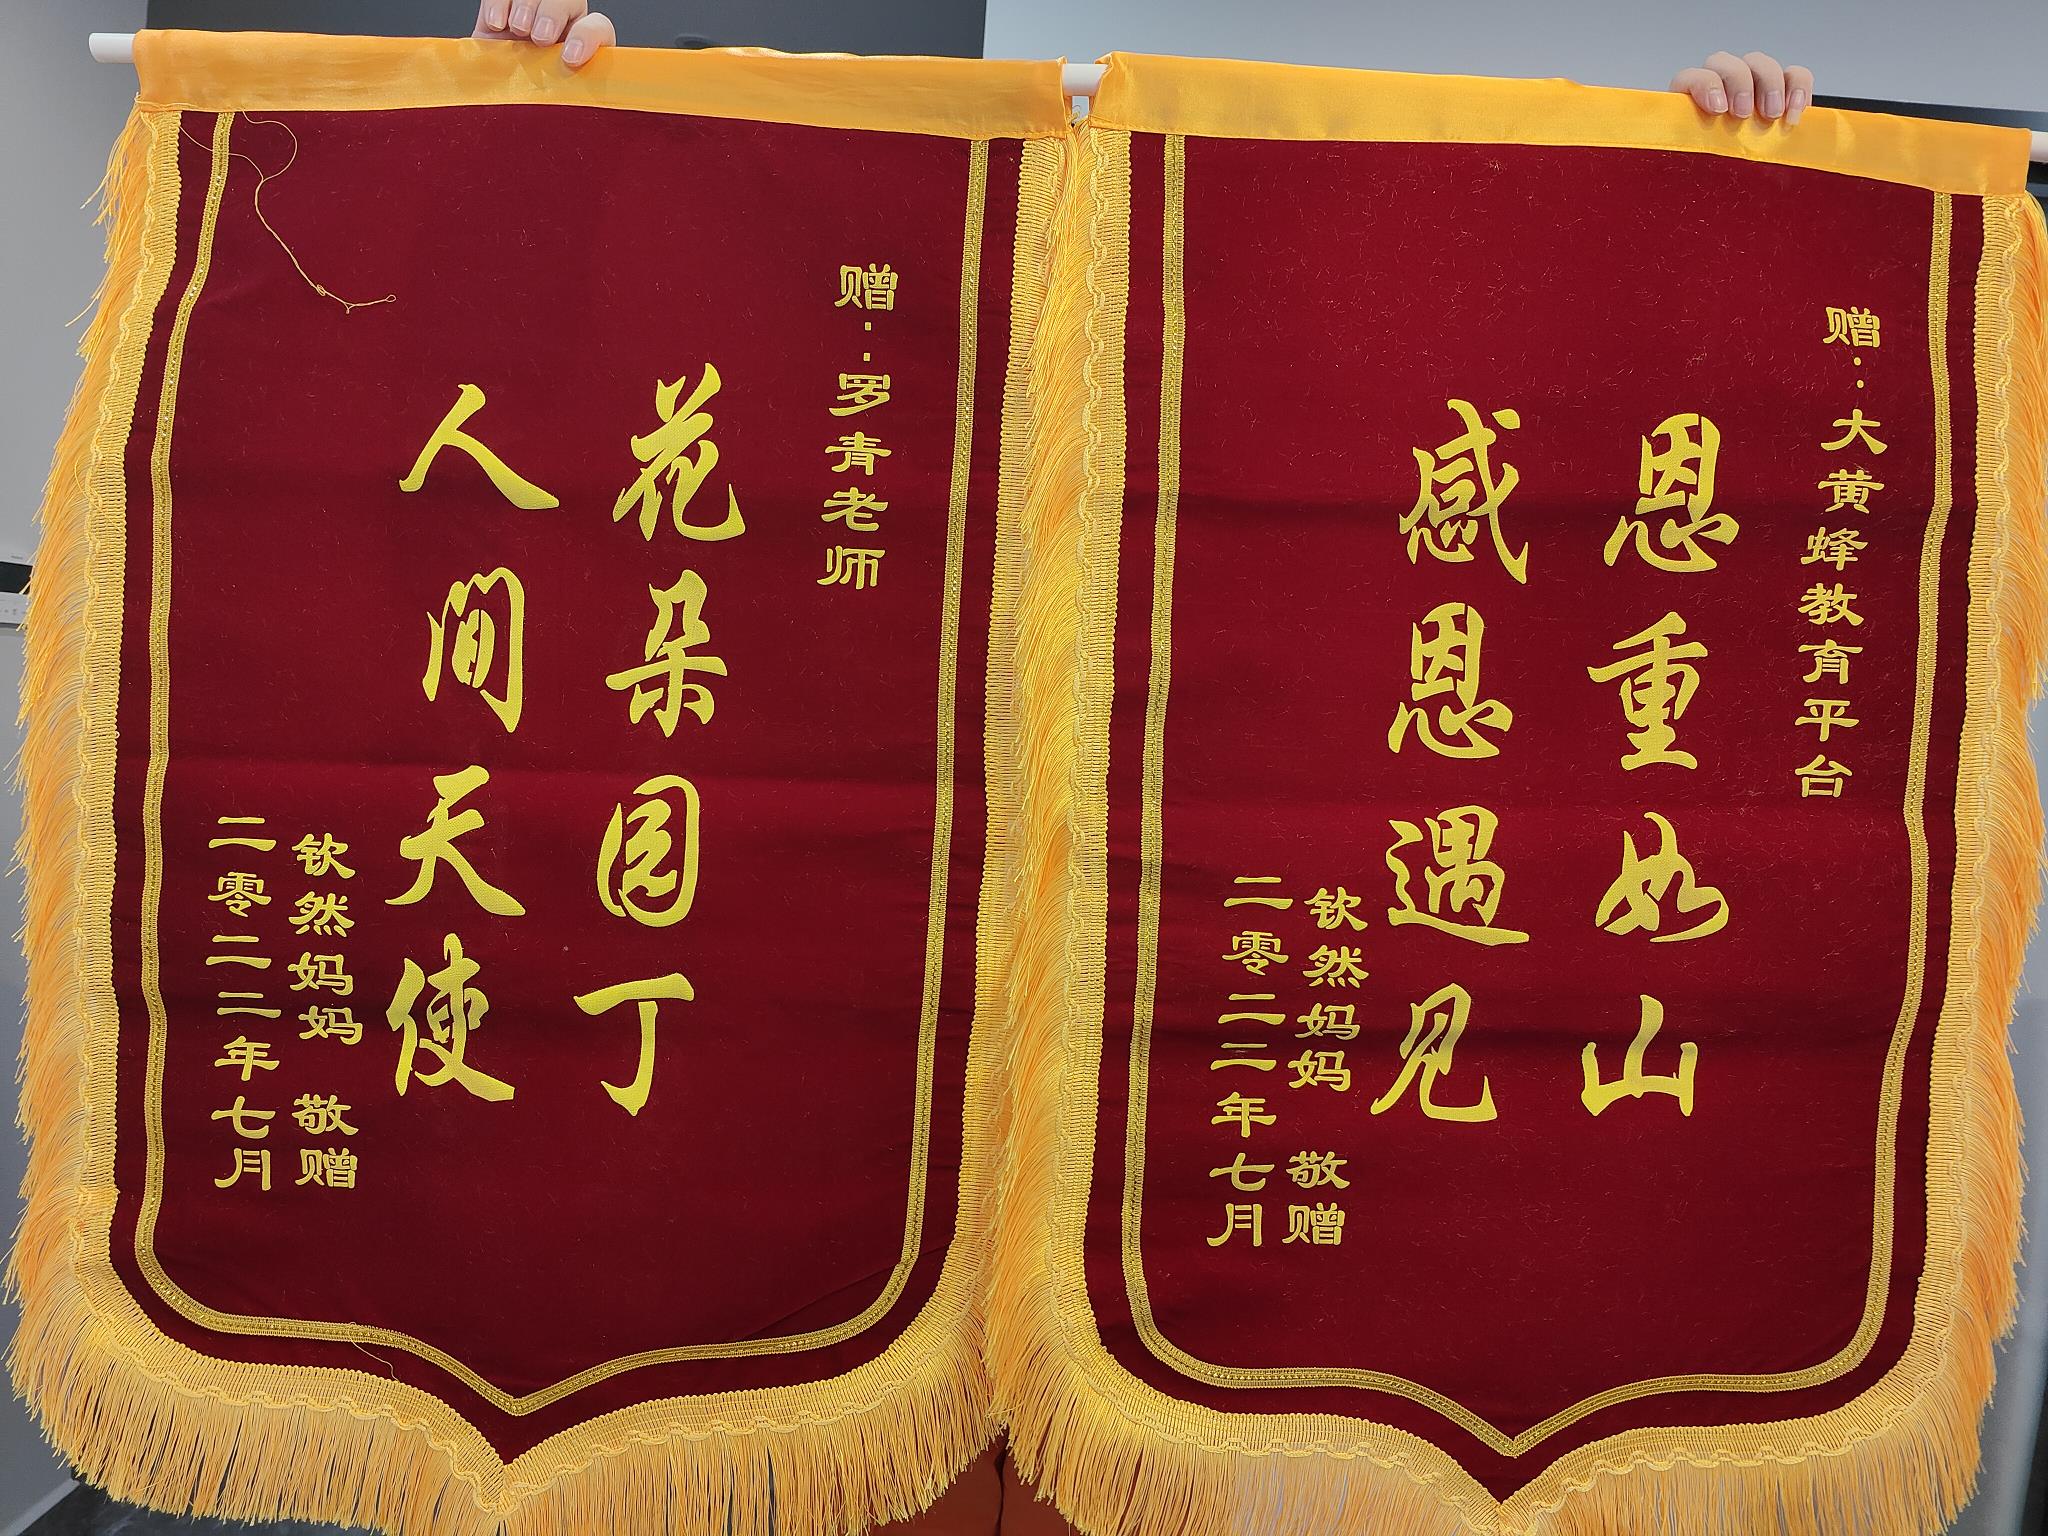 赠：罗青老师
花朵园丁
人间天使
钦然妈妈 敬赠
二零二二年七月
赠：大黄蜂教育平台
恩重如山
感恩遇见
钦然妈妈 敬赠
二零二二年七月